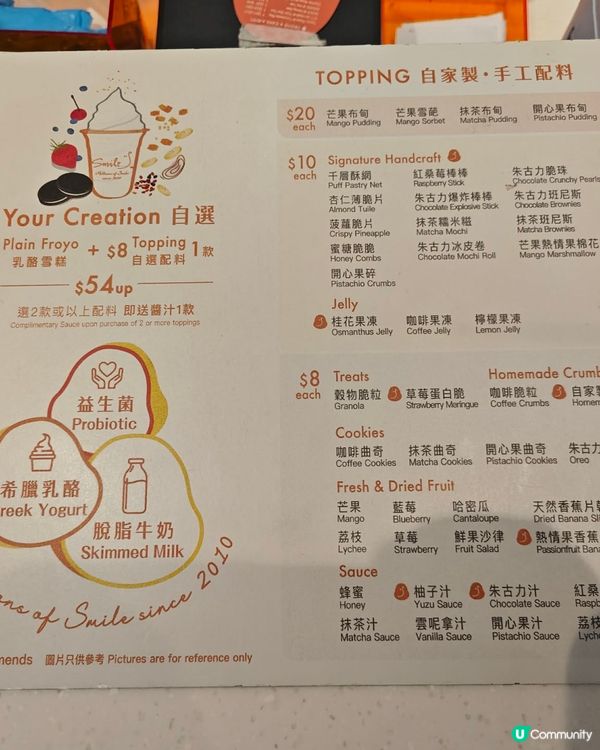 Smile
Your Creation 自選
Plain Froyo 乳酪雪糕 + $8 Topping 自選配料 1款
$54up
選2款或以上配料 即送醬汁1款
Complimentary Sauce upon purchase of 2 or more toppings
益生菌
Probiotic
希臘乳酪
reek Yogurt
脫脂牛奶
Skimmed Milk
ons of Smile since 2010
mends 圖片只供參考 Pictures are for reference only
TOPPING 自家製・手工配料
$20 each
芒果布甸 芒果雪葩 抹茶布甸 開心果布甸
Mango Pudding Mango Sorbet Matcha Pudding Pistachio Pudding
$10 each
Signature Handcraft
千層酥網 紅桑莓棒棒 朱古力脆珠
Puff Pastry Net Raspberry Stick Chocolate Crunchy Pearls
杏仁薄脆片 朱古力爆炸棒棒 朱古力班尼斯
Almond Tuile Chocolate Explosive Stick Chocolate Brownies
菠蘿脆片 抹茶糯米糍 抹茶班尼斯
Crispy Pineapple Matcha Mochi Matcha Brownies
蜜糖脆脆 朱古力冰皮卷 芒果熱情果棉花
Honey Combs Chocolate Mochi Roll Mango Marshmallow
開心果碎
Pistachio Crumbs
Jelly
桂花果凍 咖啡果凍 檸檬果凍
Osmanthus Jelly Coffee Jelly Lemon Jelly
$8 each
Treats Homemade Crumb
穀物脆粒 草莓蛋白脆 咖啡脆粒 自家
Granola Strawberry Meringue Coffee Crumbs Homem
Cookies
咖啡曲奇 抹茶曲奇 開心果曲奇 朱古力
Coffee Cookies Matcha Cookies Pistachio Cookies Oreo
Fresh & Dried Fruit
芒果 藍莓 哈密瓜 天然香蕉片
Mango Blueberry Cantaloupe Dried Banana Sli
荔枝 草莓 鮮果沙律 熱情果香蕉
Lychee Strawberry Fruit Salad Passionfruit Bana
Sauce
蜂蜜 柚子汁 朱古力汁 紅桑
Honey Yuzu Sauce Chocolate Sauce Raspb
抹茶汁 雲呢拿汁 開心果汁 荔枝
Matcha Sauce Vanilla Sauce Pistachio Sauce Lych
U Community